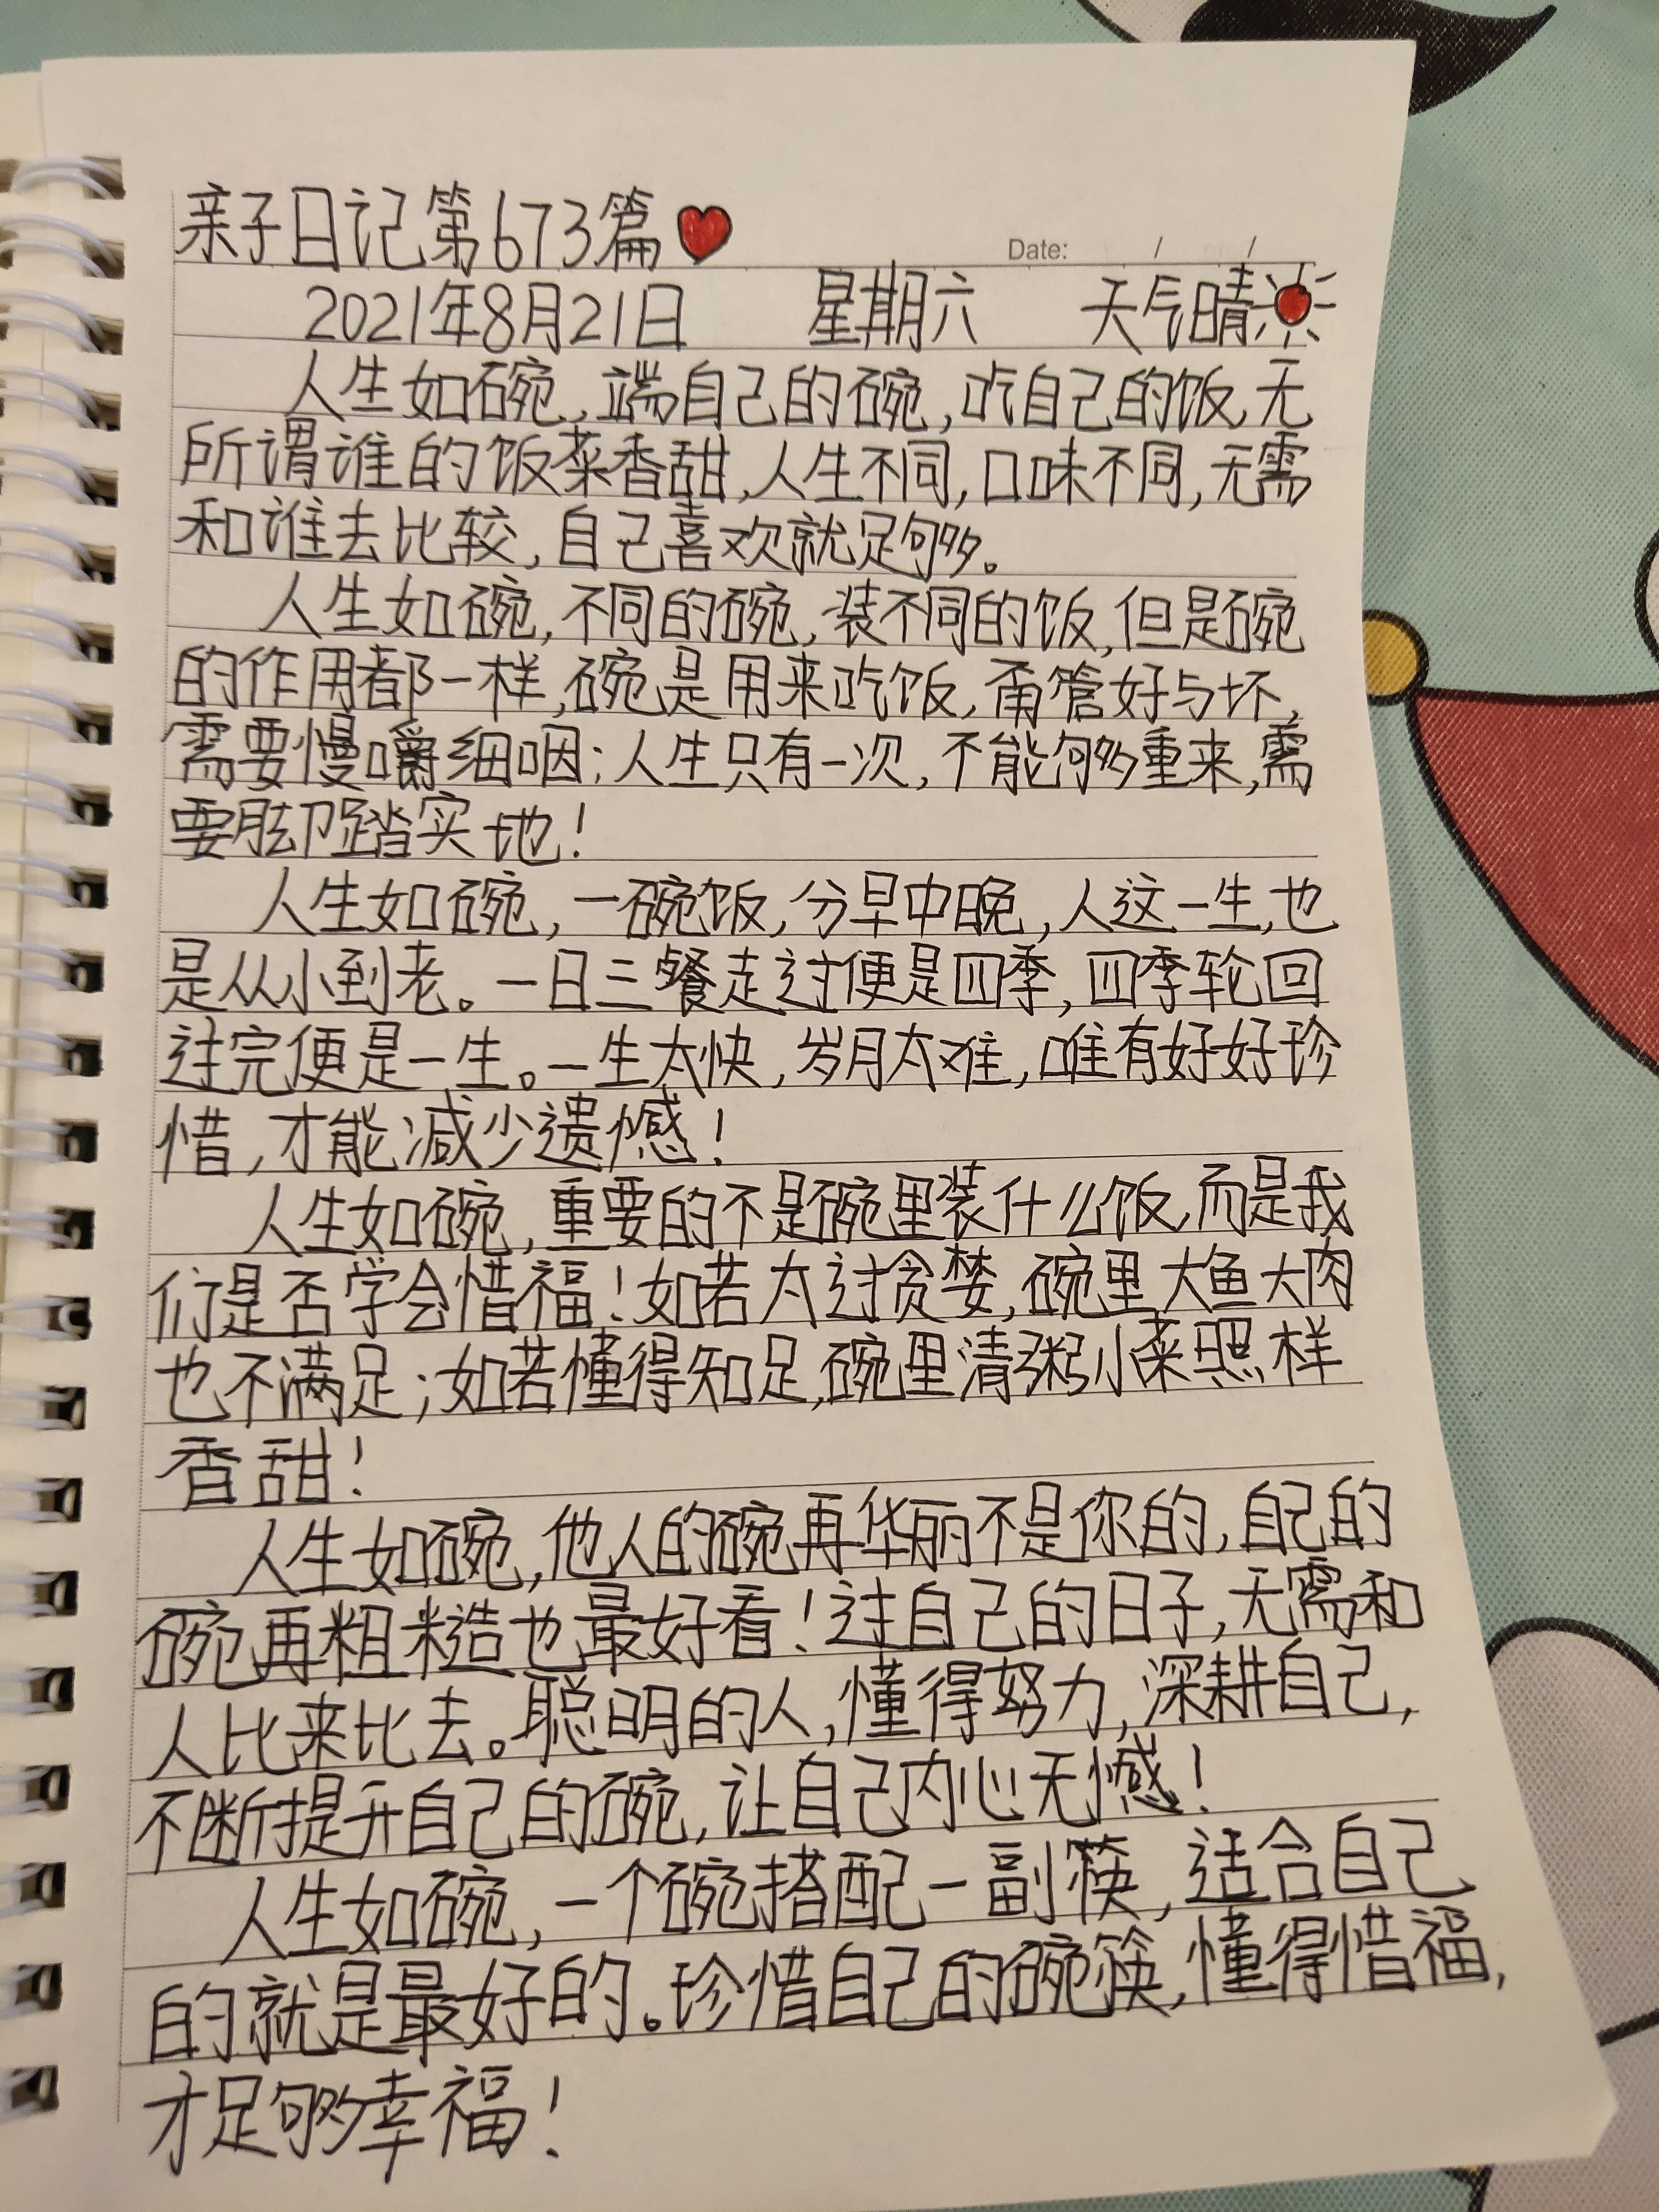 亲子日记第673篇
Date: / /
2021年8月21日 星期六 天气晴
人生如碗,端自己的碗,吃自己的饭,无
所谓谁的饭菜香甜,人生不同,口味不同,无需
和谁去比较,自己喜欢就足够。
人生如碗,不同的碗,装不同的饭,但是碗
的作用都一样,碗是用来吃饭,甭管好与坏,
需要慢嚼细咽;人生只有一次,不能够重来,需
要脚踏实地!
人生如碗,一碗饭,分早中晚,人这一生,也
是从小到老。一日三餐走过便是四季,四季轮回
过完便是一生。一生太快,岁月太难,唯有好好珍
惜,才能减少遗憾!
人生如碗,重要的不是碗里装什么饭,而是我
们是否学会惜福!如若太过贪婪,碗里大鱼大肉
也不满足;如若懂得知足,碗里清粥小菜照样
香甜!
人生如碗,他人的碗再华丽不是你的,自己的
碗再粗糙也最好看!过自己的日子,无需和
人比来比去。聪明的人,懂得努力,深耕自己,
不断提升自己的碗,让自己内心无憾!
人生如碗,一个碗搭配一副筷,适合自己
的就是最好的。珍惜自己的碗筷,懂得惜福,
才足够幸福!